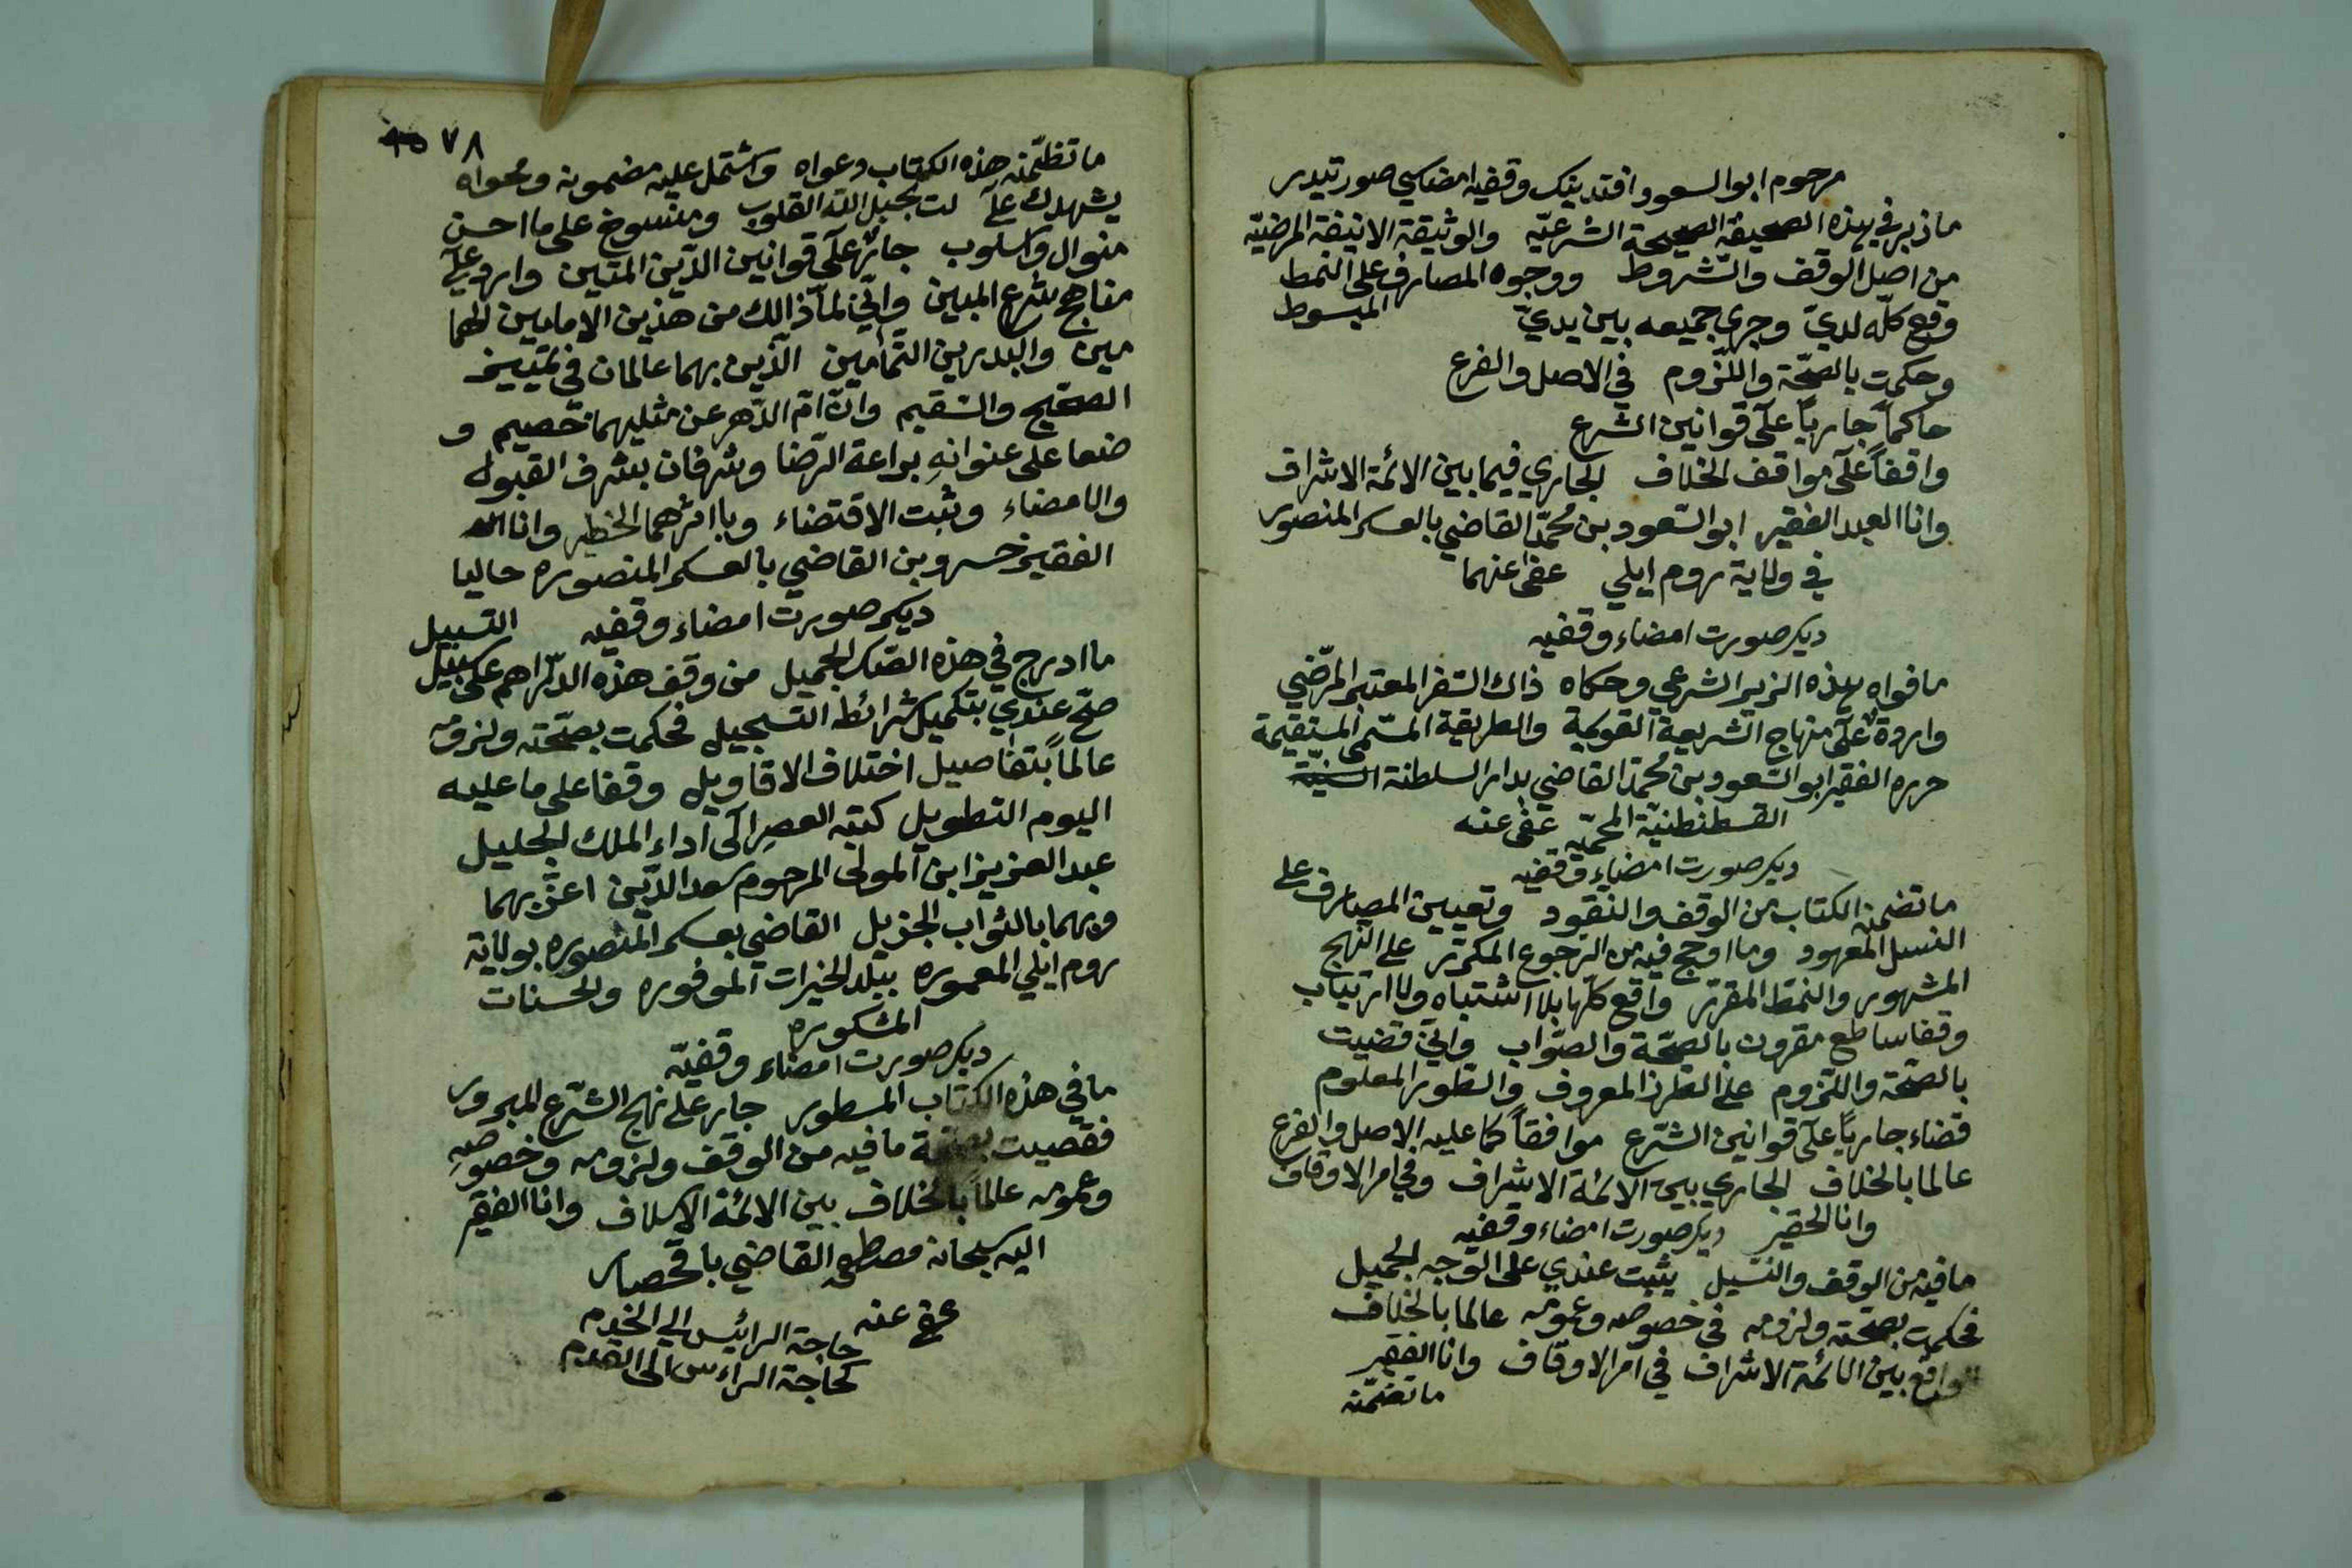 مرحوم ابو السعود افندينك وقفيه امضاسي صورتيدر
ما ذبر في هذه الصحيفة الصحيحة الشرعيّه والوثيقة الانيقة المرضيّه
من اصل الوقف والشروط ووجوه المصارف على النمط
المبسوط
وقع كلّه لديّ وجرى جميعه بين يديّ
وحكمت بالصحّة واللّزوم في الاصل والفرع
حاكماً جارياً على قوانين الشرع
واقفاً على مواقف الخلاف الجاري فيما بين الائمة الاشراف
وانا العبد الفقير ابو السّعود بن محمّد القاضي بالعسكر المنصور
في ولاية روم ايلي عفى عنهما
ديكر صورت امضاء وقفيه
ما فواه هذه الزبر الشرعي وحكاه ذاك السّفر المعتبر المرّضي
وارد على منهاج الشريعة القويمة والطريقة المسمى المستقيمة
حرره الفقير ابو السّعود بن محمد القاضي بدار السلطنة السنيّة
القسطنطنيّة المحميّه عفى عنه
ديكر صورت امضاء وقفيه
ما تضمنه الكتاب من الوقف والنقود وتعيين المصارف على
النسل المعهود وما اوجح فيه من الرجوع المكرّر على النهج
المشهور والنمط المقرّر واقع كلّها بلا اشتباه ولا ارتياب
وقفا ساطع مقرون بالصحّة والصّواب وانّي قضيت
بالصحّة واللّزوم على الطرز المعروف والطور المعلوم
قضاء جارياً على قوانين الشّرع موافقاً كما عليه الاصل والفرع
عالما بالخلاف الجاري بين الائمة الاشراف وفي امر الاوقاف
وانا الحقير ديكر صورت امضاء وقفيه
ما فيه من الوقف والتسيل يثبت عندي على الوجه الجميل
فحكمت بصحته ولزومه في خصوصه وعمومه عالما بالخلاف
الواقع بين الائمة الاشراف في امر الاوقاف وانا الفقير
ما تضمّنه
٧٨
ما تظمّنه هذه الكتاب دعواه واشتمل عليه مضمونه وفحواه
يشهدك على لت بحبل الله القلوب ومنسوخ على ما احسن
منوال واسلوب جارٍ على قوانين الدّين المتين وارد على
مناهج شرع المبين وانّي لما ذالك من هذين الامامين الهما
مين والبدرين التّمامين الّذين بهما عالمان في تمييز
الصحيح والسّقيم وانّ امّ الدّهر عن مثليهما خصيم و
ضعا على عنوانه براعة الرّضا وشرفان بشرف القبول
والامضاء وثبت الاقتضاء وبا امرهما الخطير وانا الله
الفقير خسرو بن القاضي بالعسكر المنصوره حاليا
ديكر صورت امضاء وقفيه التسبيل
ما ادرج في هذه الصّك الجميل من وقف هذه الدّراهم على سبيل
صحّ عندي بتكميل شرائط التسجيل فحكمت بصحّته ولزومه
عالماً بتفاصيل اختلاف الاقاويل وقفا على ما عليه
اليوم التطويل كتبه العصر الى اداء الملك الجليل
عبد العزيز ابن المولى المرحوم سعد الدّين اعزّ بهما
وبهما بالثواب الجزيل القاضي بعسكر المنصوره بولاية
روم ايلي المعموره بيلد الخيرات الموفوره والحسنات
المشكوره
ديكر صورت امضاء وقفيّه
ما في هذه الكتاب المسطور جار على نهج الشرع المبرور
فقضيت بصحة ما فيه من الوقف ولزومه وخصوصه
وعمومه عالماً بالخلاف بين الائمة الاسلاف وانا الفقير
اليه سبحانه مصطفى القاضي باقحصار
عفى عنه
حاجة الرائيس الى الخدم
كحاجة الراءس الى القدم